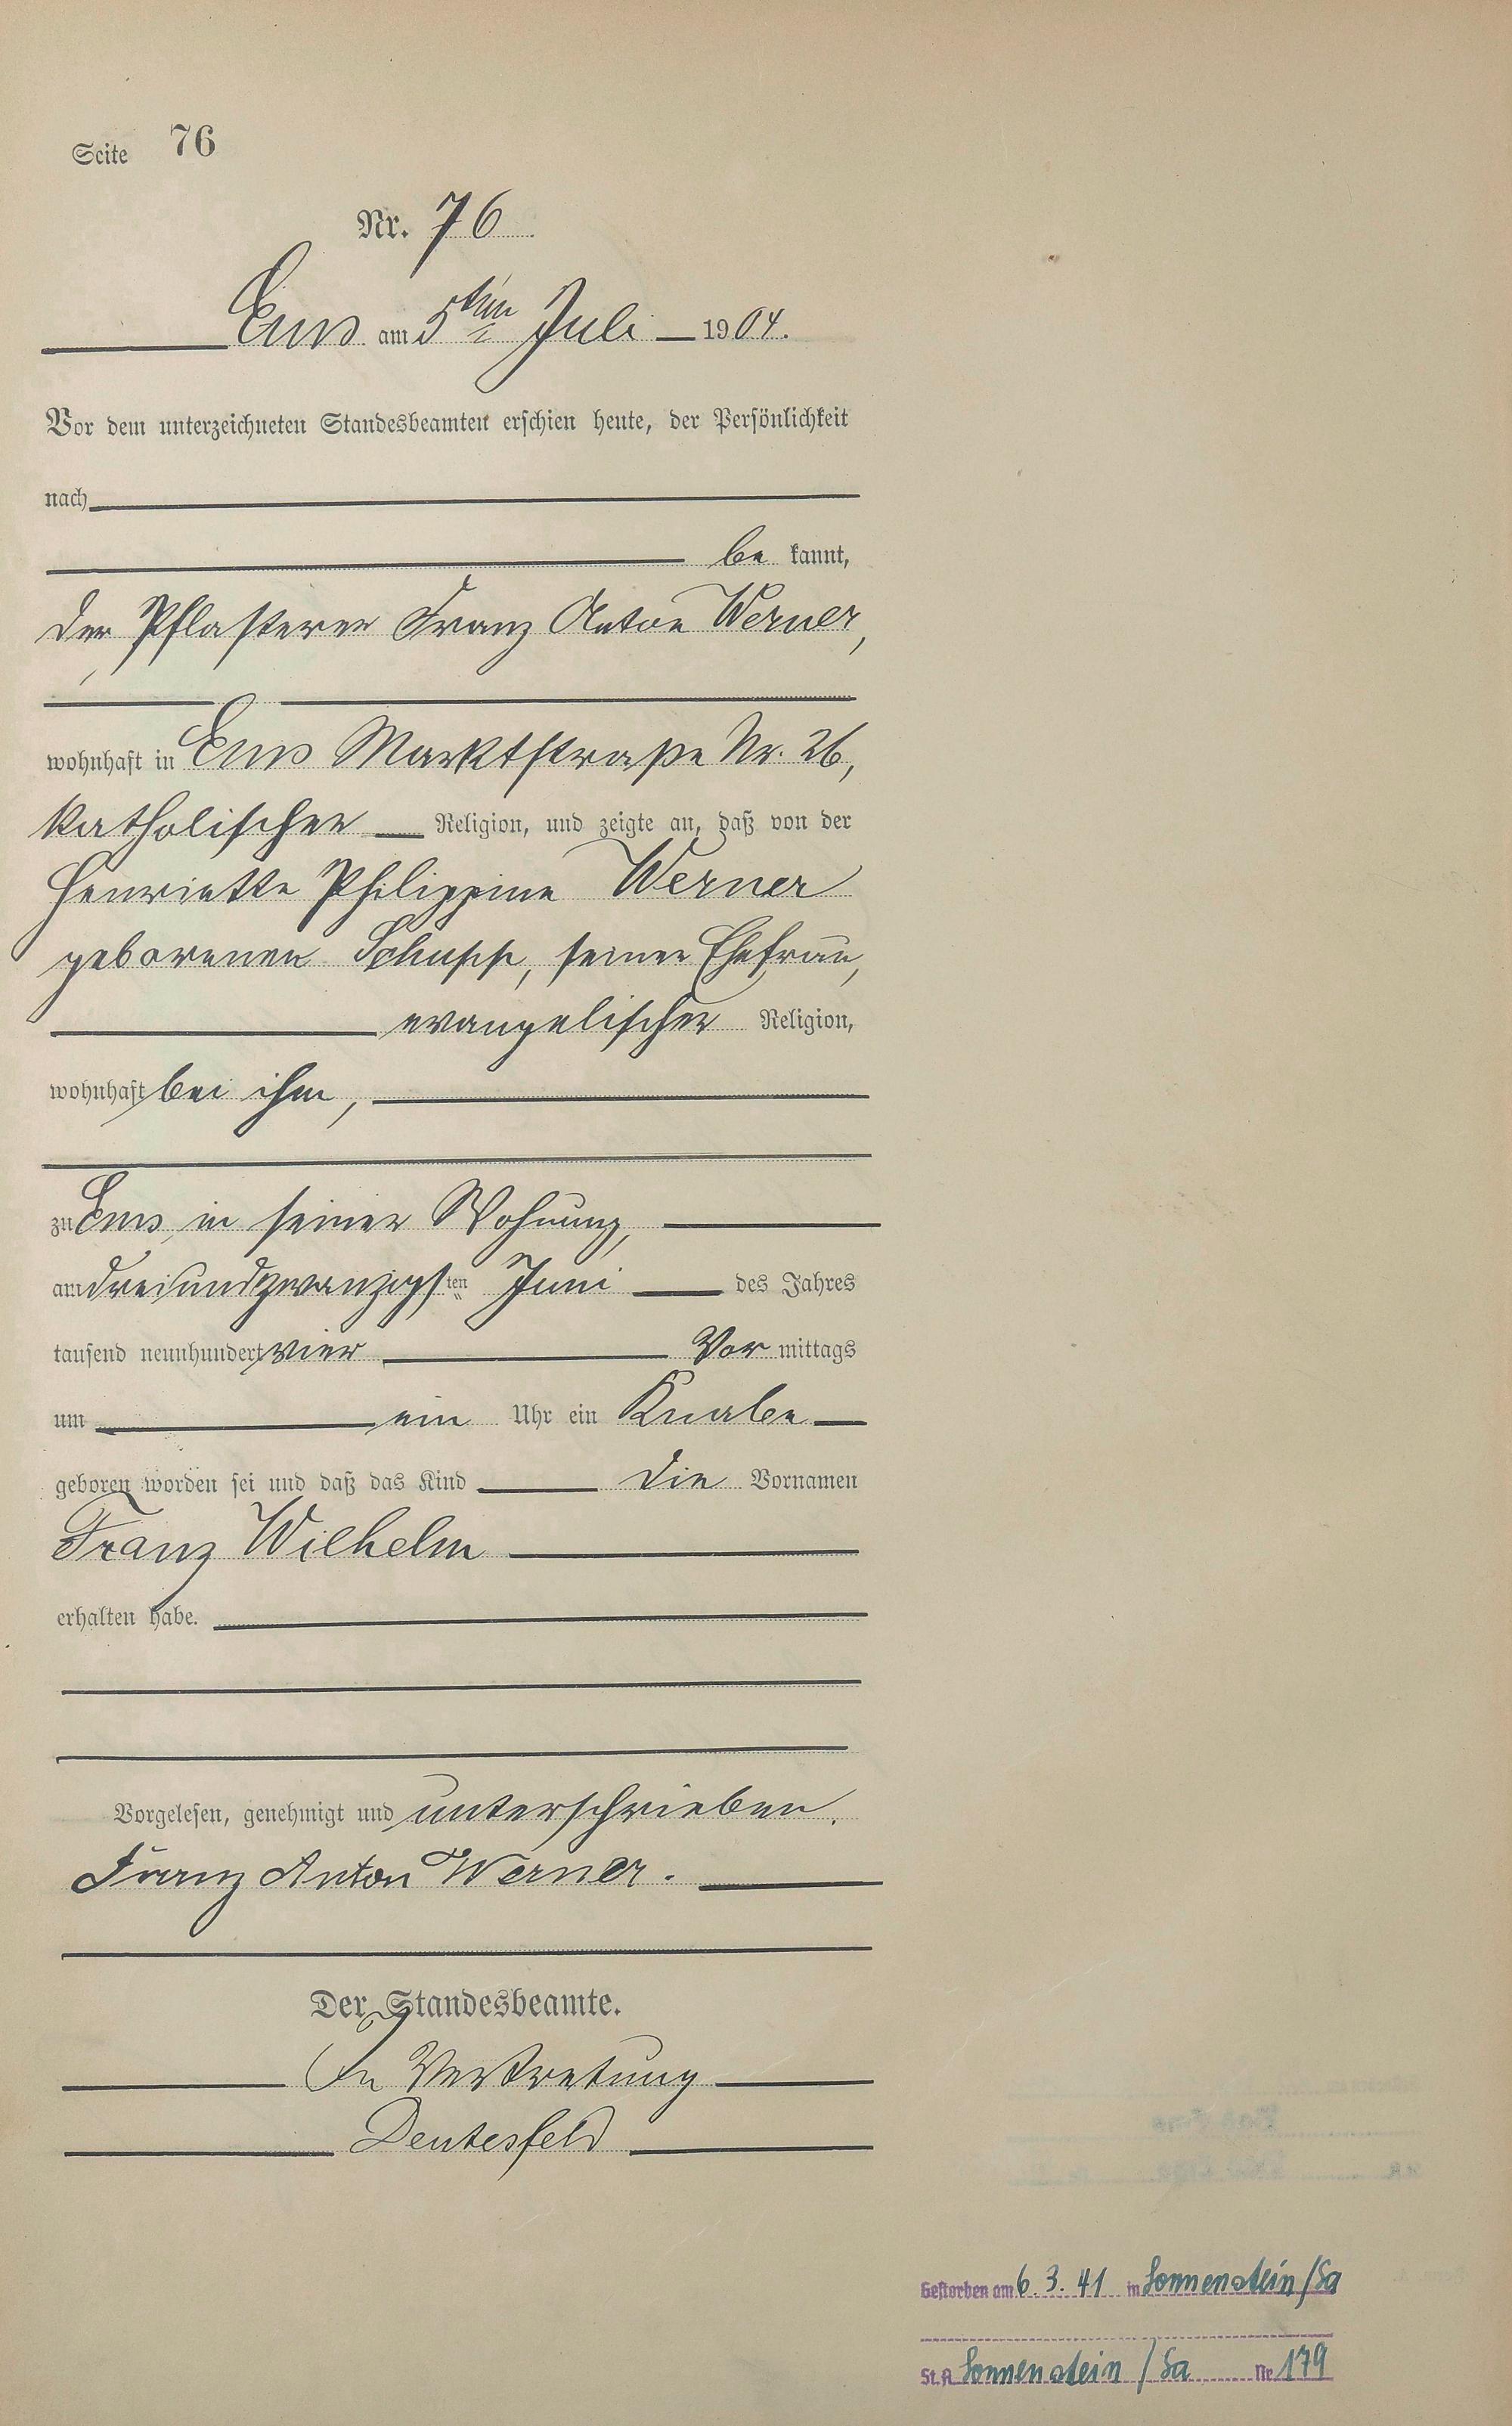 Seite 76
Nr. 76
Ems am 5ten Juli 1904.
Vor dem unterzeichneten Standesbeamten erschien heute, der Persönlichkeit
nach
be kannt,
der Pflasterer Franz Anton Werner,
wohnhaft in Ems Marktstraße Nr. 26,
katholischer Religion, und zeigte an, daß von der
Henriette Philippine Werner
geborenen Schupp, seiner Ehefrau,
evangelischer Religion,
wohnhaft bei ihm,
zu Ems, in seiner Wohnung,
am dreiundzwanzigsten Juni des Jahres
tausend neunhundert vier Vor mittags
um ein Uhr ein Knabe
geboren worden sei und daß das Kind die Vornamen
Franz Wilhelm
erhalten habe.
Vorgelesen, genehmigt und unterschrieben.
Franz Anton Werner.
Der Standesbeamte.
In Vertretung
Deutesfeld
Gestorben am 6.3.41 in Sonnenstein/Sa
St.A Sonnenstein/Sa Nr 179